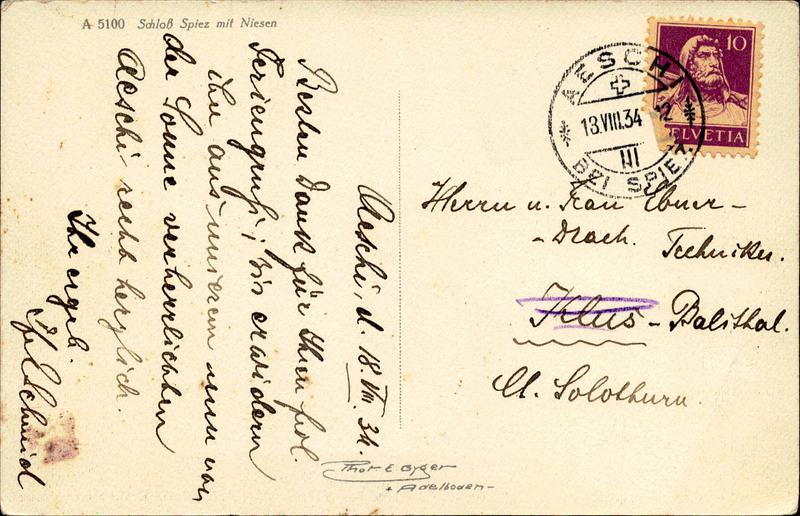 A 5100 Schloß Spiez mit Niesen
Aeschi, d. 18. VIII. 34.
Besten Dank für Ihren frdl.
Feriengruß; wir erwidern
ihn aus unserem nun von
der Sonne verherrlichten
Aeschi recht herzlich.
Ihr ergeb.
Schmid
10
HELVETIA
AESCHI
18.VIII.34
III
BEI SPIEZ
Herrn u. Frau Ebner-
-Drach. Techniker.
Klus-Balsthal.
Ct. Solothurn.
Phot E Gyger
Adelboden